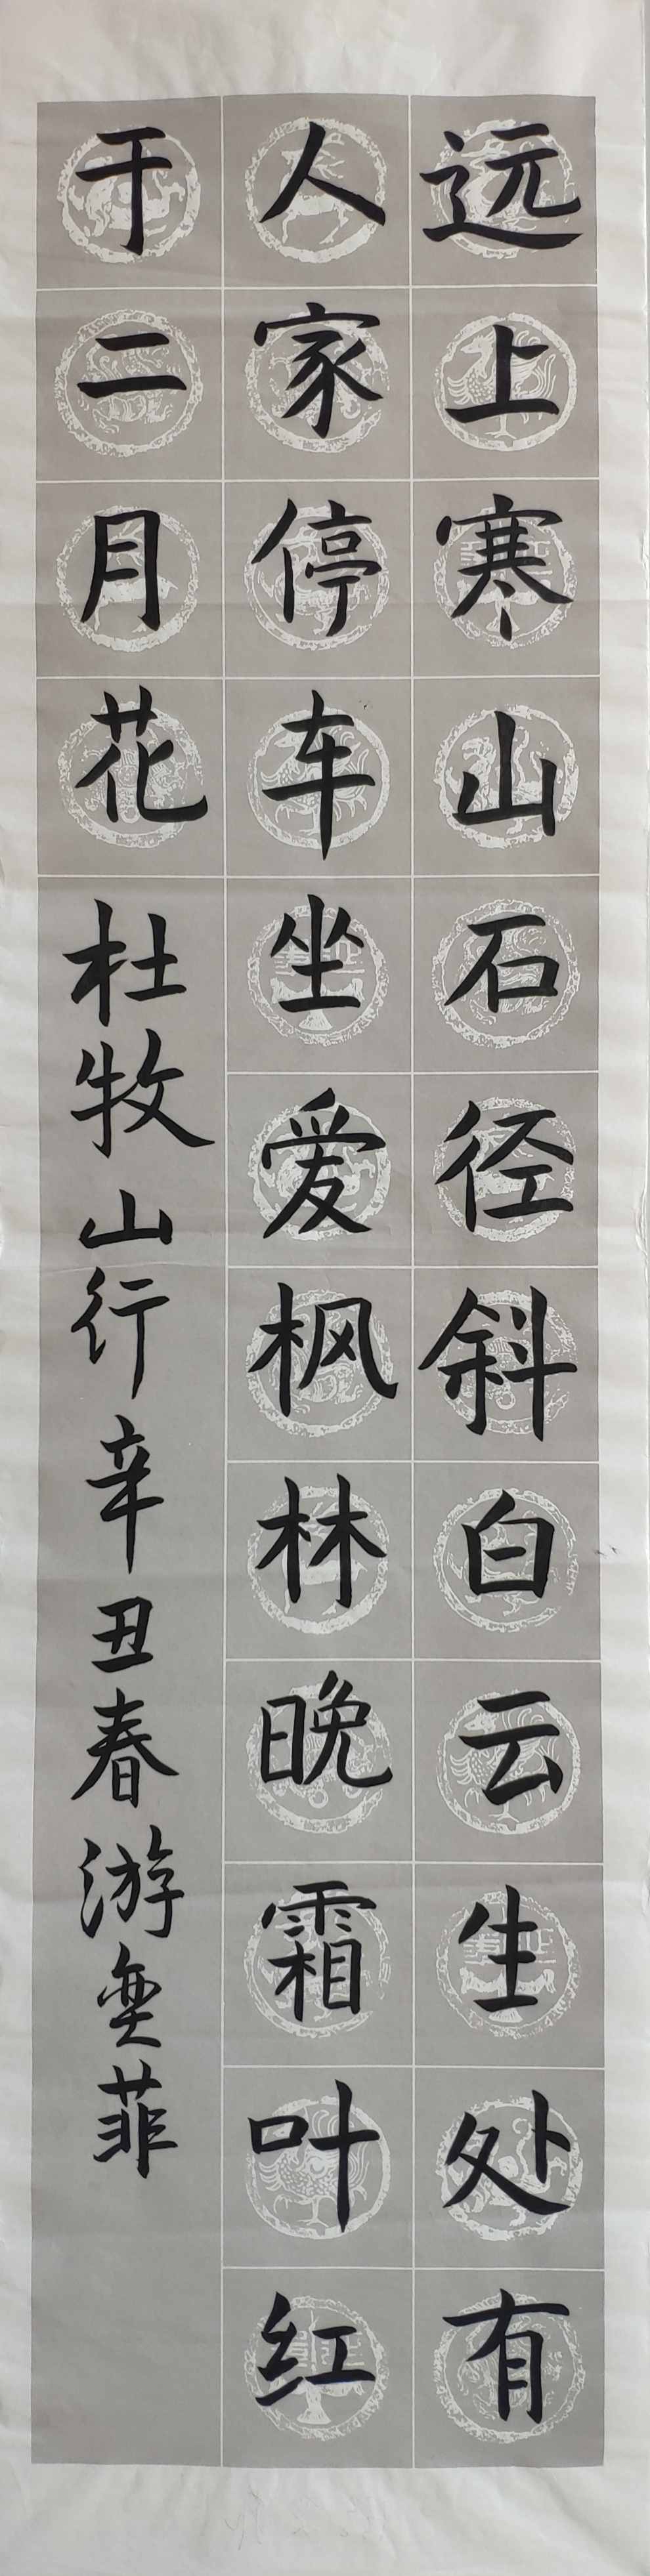 远上寒山石径斜白云生处有
人家停车坐爱枫林晚霜叶红
于二月花杜牧山行辛丑春游奕菲